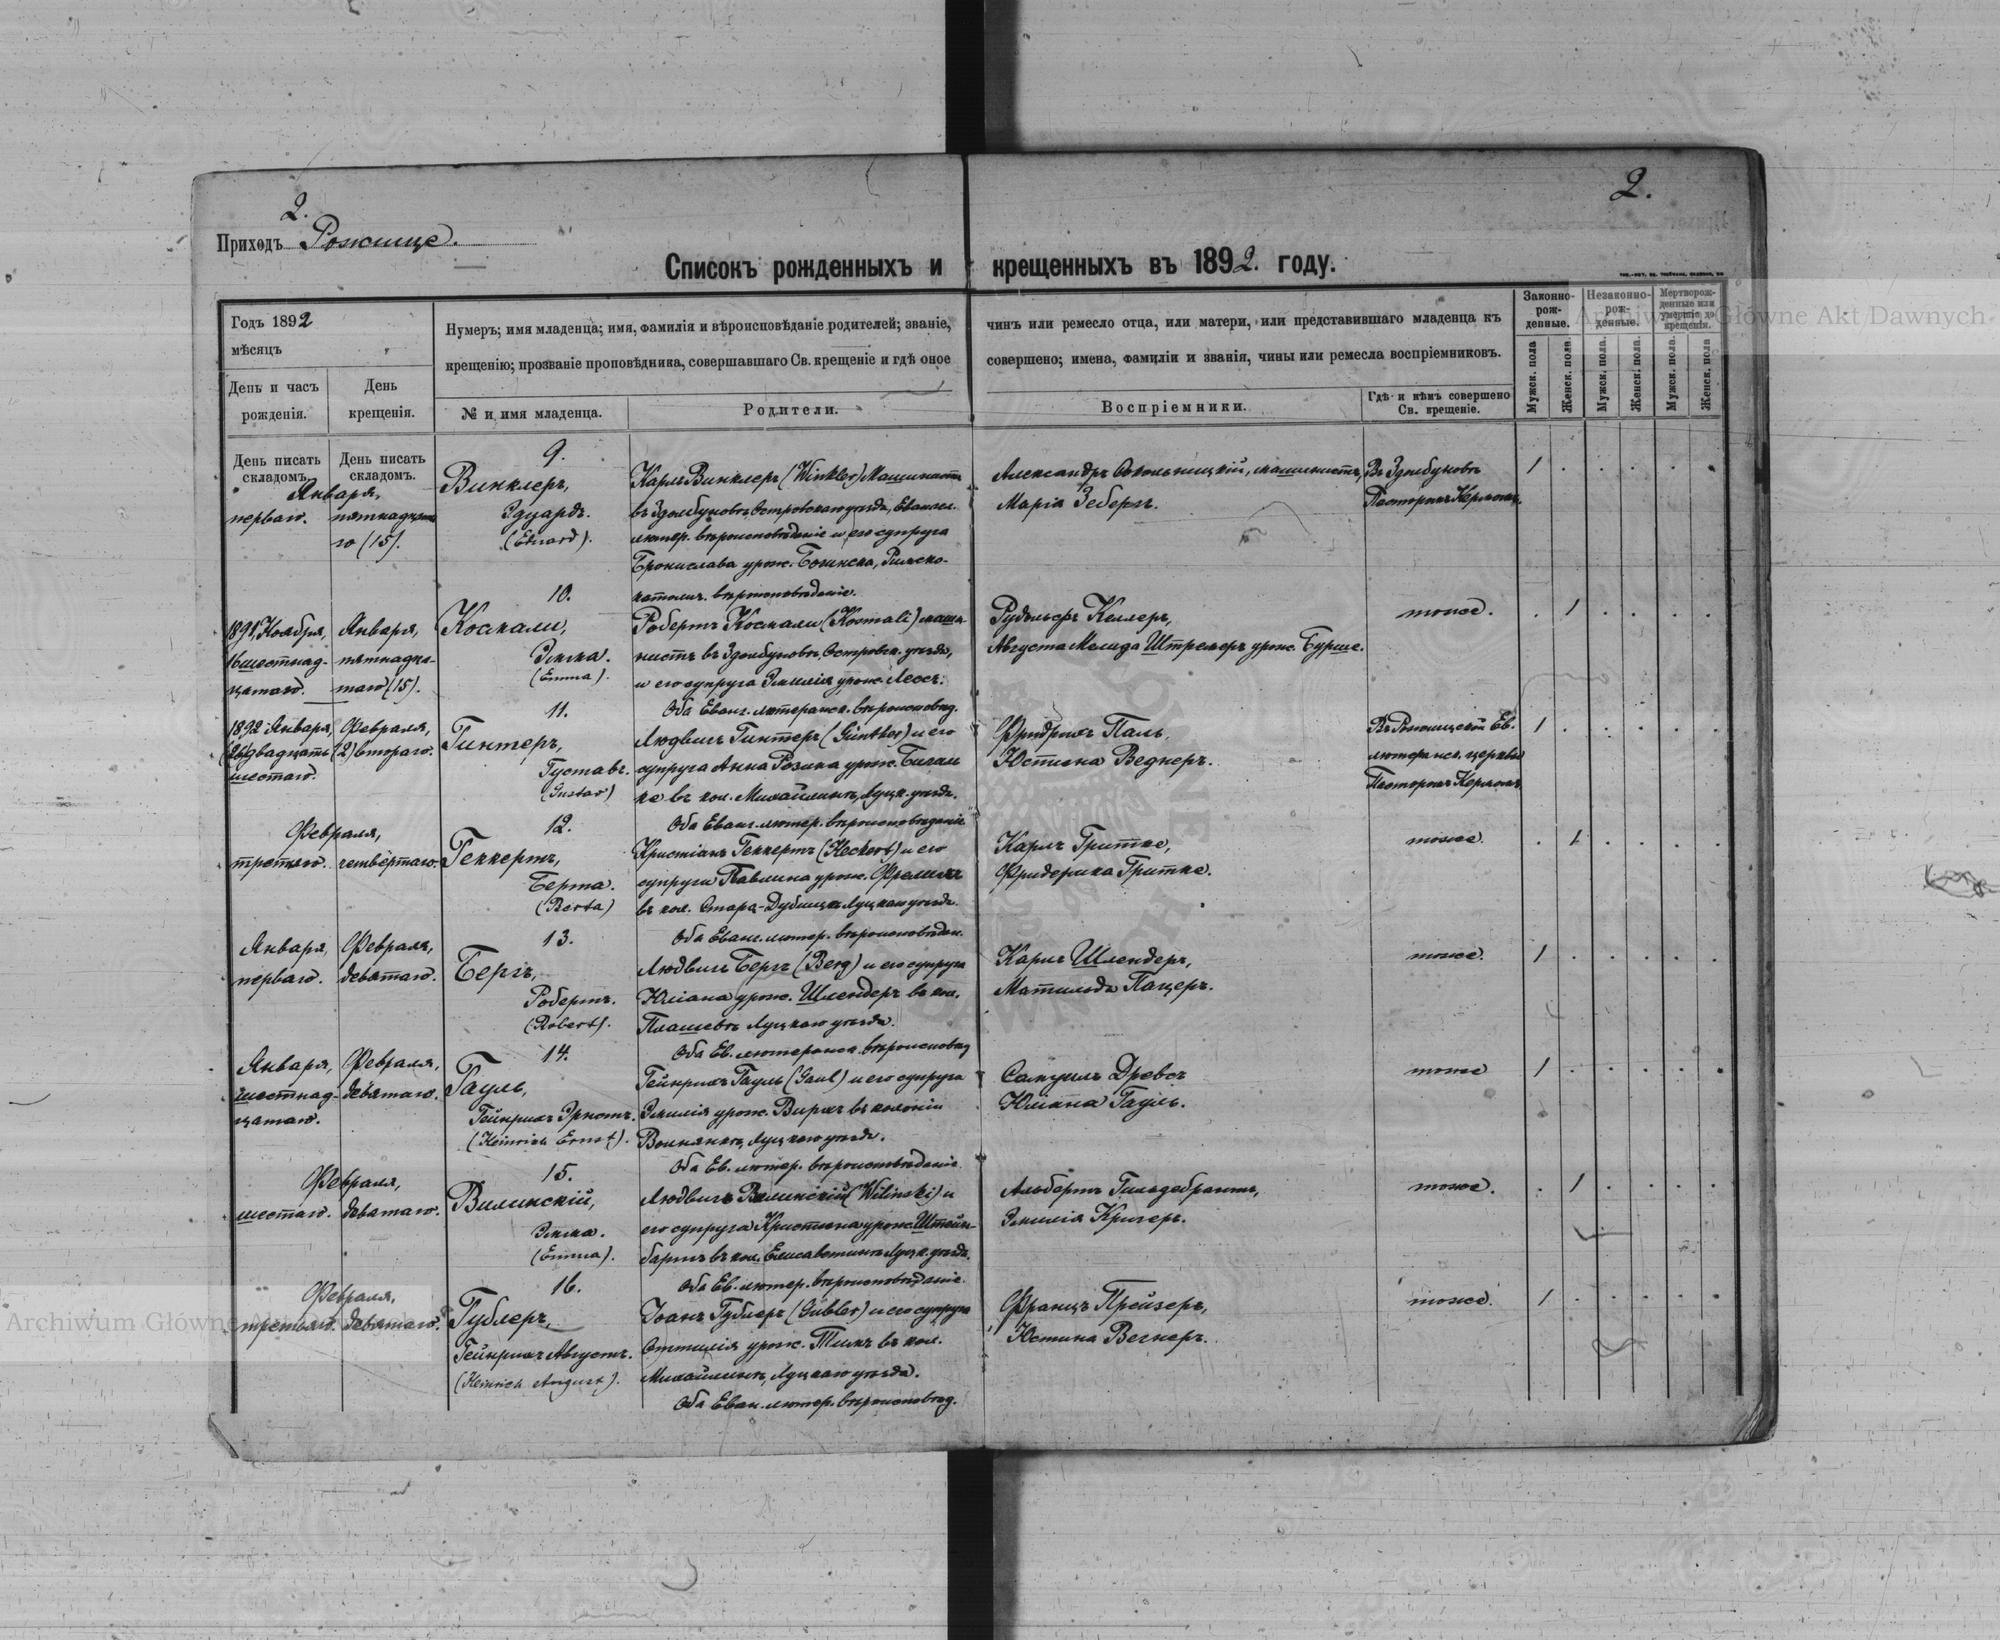 2.
2.
Приходъ Рожище.
Списокъ рожденныхъ и крещенныхъ въ 1892. году.
Годъ 1892
мѣсяцъ
День и часъ рожденія.
День крещенія.
Нумеръ; имя младенца; имя, фамилія и вѣроисповѣданіе родителей; званіе, чинъ или ремесло отца, или матери, или представившаго младенца къ
крещенію; прозваніе проповѣдника, совершавшаго Св. крещеніе и гдѣ оное совершено; имена, фамиліи и званія, чины или ремесла воспріемниковъ.
№ и имя младенца.
Родители.
Воспріемники.
Гдѣ и кѣмъ совершено Св. крещеніе.
Законно-рож-денные.
Незаконно-рож-денные.
Мертворож-денные или умершіе до крещенія.
Мужск. пола
Женск. пола.
Мужск. пола.
Женск. пола.
Мужск. пола.
Женск. пола
День писать складомъ.
День писать складомъ.
Января,
перваго.
пятнадцата
го (15).
9.
Винклеръ,
Эдуардъ.
(Eduard).
Карлъ Винклеръ (Winkler) Машинистъ
въ Здолбуновѣ, Островскаго уѣзда, Евангел.
лютер. вѣроисповѣданіе и его супруга
Бронислава урож. Римско-
католич. вѣроисповѣданіе.
Александръ машинистъ,
Марія Зебергъ.
Въ Здолбуновѣ
Пасторомъ Керномъ.
1
10.
1891 Ноября,
16 шестнад-
цатаго.
Января,
пятнадца-
таго (15).
Космали,
Эмма.
(Emma).
Робертъ Космали (Kosmali) маши-
нистъ въ Здолбуновѣ, Островск. уѣзда,
и его супруга Эмилія урож.
Оба Еванг. лютеранск. вѣроисповѣд.
Рудольфъ Келлеръ,
Августа Штремеръ урож. Бурше.
тоже.
1
11.
1892 Января,
(26) двадцать
шестаго.
Февраля,
(2) втораго.
Гинтеръ,
Густавъ.
(Gustav)
Людвигъ Гинтеръ (Günther) и его
супруга Анна Розина урож.
ке въ кол. Михайлинѣ, Луцк. уѣзда.
Оба Еванг. лютер. вѣроисповѣданіе
Фридрихъ Паль,
Юстина Веднеръ.
Въ Рожищской Ев.
лютеранск. церкви
Пасторомъ Керномъ
1
12.
Февраля,
третяго.
четвёртаго.
Геккертъ,
Берта.
(Berta)
Христіанъ Геккертъ (Heckert) и его
супруга Павлина урож.
въ кол. Стара-Дубища Луцкаго уѣзда.
Оба Еванг. лютер. вѣроисповѣдан.
Карлъ Гритке,
Фридерика Гритке.
тоже.
1
13.
Января,
перваго.
Февраля,
девятаго.
Бергъ,
Робертъ.
(Robert).
Людвигъ Бергъ (Berg) и его супруга
Юліана урож. Шлендеръ въ кол.
Луцкаго уѣзда.
Оба Ев. лютеранск. вѣроисповѣд
Карлъ Шлендеръ,
Матильда Пацеръ.
тоже.
1
14.
Января,
шестнад-
цатаго.
Февраля,
девятаго.
Гауль,
Гейнрихъ Эрнстъ.
(Heinrich Ernst).
Гейнрихъ Гауль (Gaul) и его супруга
Эмилія урож. Вирхъ въ колоніи
Волнянка, Луцкаго уѣзда.
Оба Ев. лютер. вѣроисповѣданіе
Самуилъ Древсъ
Юліана Гауль.
тоже
1
15.
Февраля,
шестаго.
девятаго.
Вилинскій,
Эмма.
(Emma).
Людвигъ Вилинскій (Wilinski) и
его супруга Христина урож. Штейн-
бартъ въ кол. Елисаветинѣ Луцк. уѣзда.
Оба Ев. лютер. вѣроисповѣданіе.
Альбертъ Гильдебрантъ,
Эмилія Кригеръ.
тоже.
1
16.
Февраля,
третяго.
девятаго.
Гублеръ,
Гейнрихъ Августъ.
(Heinrich August).
Іоанъ Гублеръ (Gübler) и его супруга
Оттилія урож. Тимъ въ кол.
Михайлинѣ, Луцкаго уѣзда.
Оба Еван. лютер. вѣроисповѣд.
Францъ Прейзеръ,
Юстина Вегнеръ.
тоже.
1
Archiwum Główne Akt Dawnych
Archiwum Główne Akt Dawnych